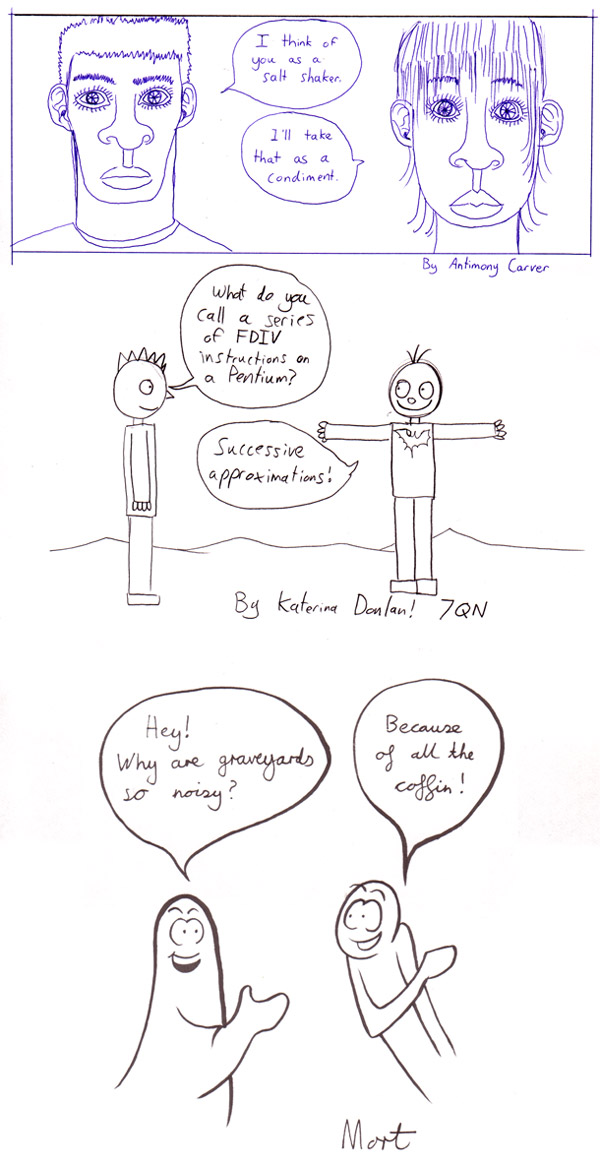 I think of
you as a
salt shaker.
I'll take
that as a
condiment.
By Antimony Carver
What do you
call a series
of FDIV
instructions on
a Pentium?
Successive
approximations!
By Katerina Donlan! 7QN
Hey!
Why are graveyards
so noisy?
Because
of all the
coffin!
Mort